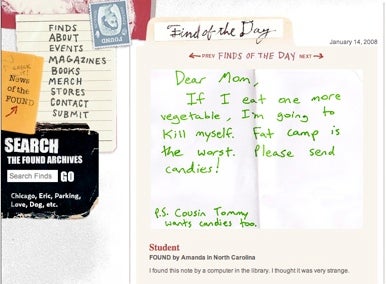 FINDS
ABOUT
EVENTS
MAGAZINES
BOOKS
MERCH
STORES
CONTACT
SUBMIT
FOUND
CHECK IT!
News
of the
FOUND
SEARCH
THE FOUND ARCHIVES
Search Finds GO
Chicago, Eric, Parking,
Love, Dog, etc.
Find of the Day
January 14, 2008
PREV FINDS OF THE DAY NEXT
Dear Mom,
If I eat one more
vegetable, I'm going to
Kill myself. Fat camp is
the worst. Please send
candies!
P.S. Cousin Tommy
wants candies too.
Student
FOUND by Amanda in North Carolina
I found this note by a computer in the library. I thought it was very strange.